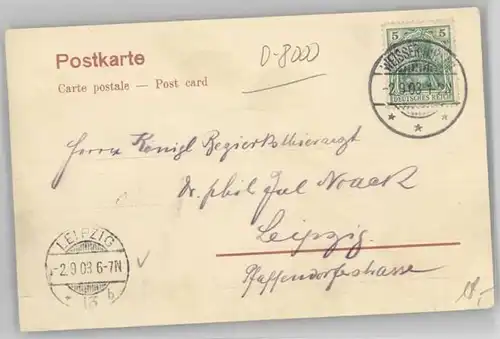 Postkarte
Carte postale — Post card
D-8000
5 5
DEUTSCHES REICH
WEISSER
-2.9.03
Herrn Königl
Dr. phil Noack
Leipzig.
Pfaffendorferstrasse
LEIPZIG
-2.9.03 6-7N
* 13 b
18,-